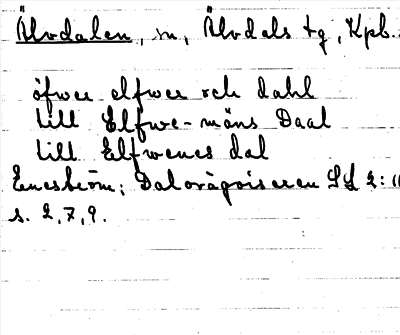 Älvdalen, m, Älvdals tg, Kpb.
öfwer elfwer och dahl
till Elfwe-mäns Daal
till Elfwenes dal
Eneström; Dalovägviseren SL 2:
s. 2, 7, 9.